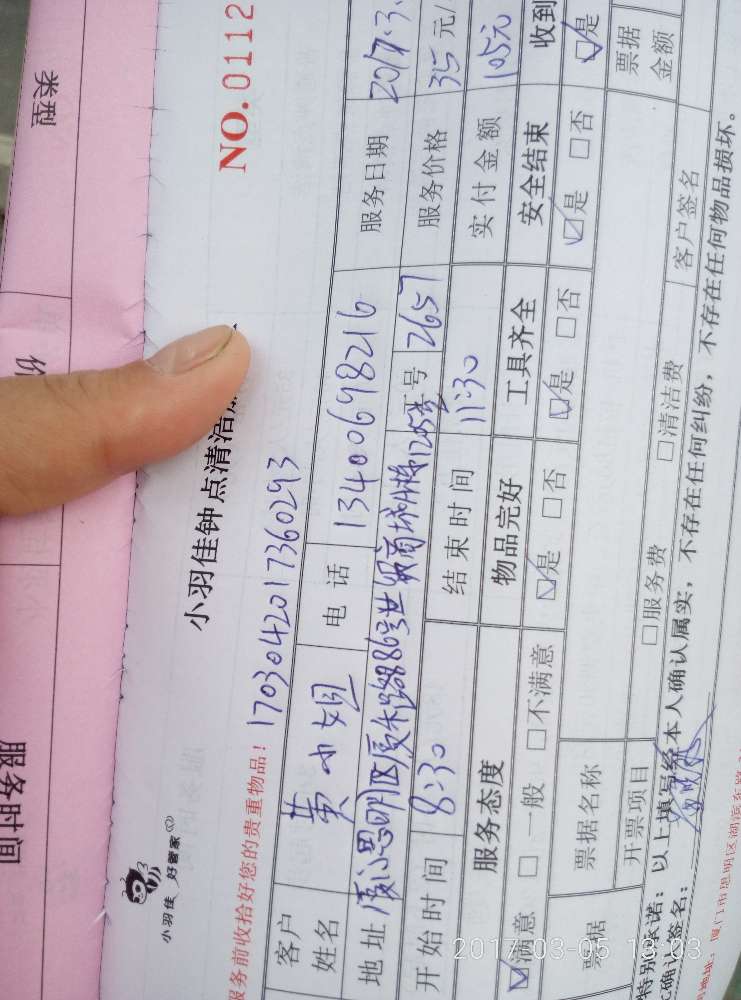 类型
价
服务时间
NO.0112
小羽佳 好管家
小羽佳钟点清洁
服务前收拾好您的贵重物品! 1703042017360293
客户姓名 黄小姐 电话 13400698216 服务日期 2017.3.
地址 厦门思明区厦禾路886号世贸商城 号 2657 服务价格 35元/
开始时间 8:30 结束时间 11:30 实付金额 105元
服务态度 物品完好 工具齐全 安全结束 收到
☑满意 □一般 □不满意 ☑是 □否 ☑是 □否 ☑是 □否 ☑是
票据 票据名称 票据金额
开票项目 □服务费 □清洁费
特别承诺:以上填写经本人确认属实,不存在任何纠纷,不存在任何物品损坏。
确认签名: 客户签名
地址:厦门市思明区湖滨东路
2017-03-05 13:03